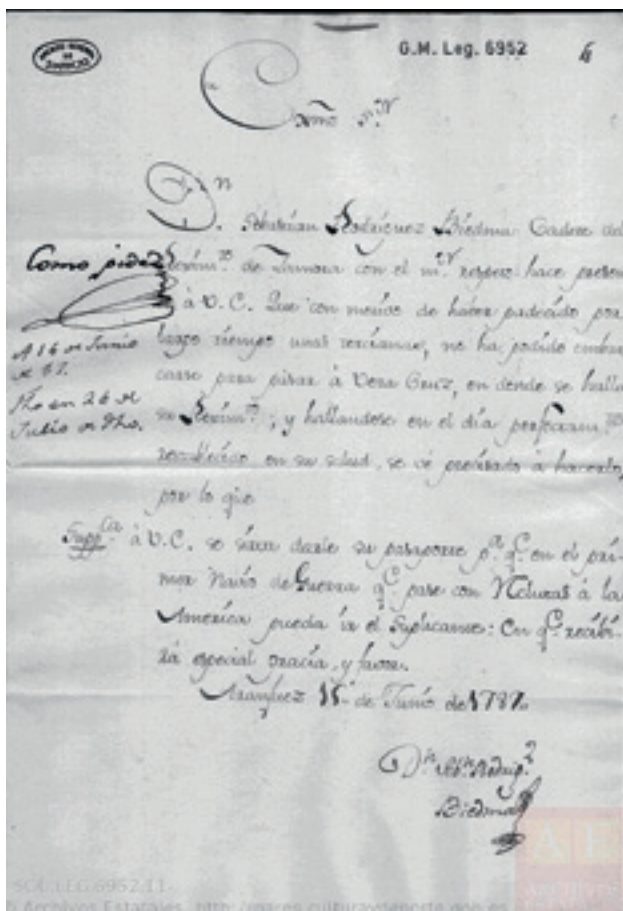 G.M. Leg. 6952
Exmo Sr
Dn Sebastian Rodriguez Biedma Cadete del
Como pide
Reximto de Zamora con el mr respeto hace presen
à V.E. Que con motivo de haber padecido por
largo tiempo unas tercianas, no ha podido embar
A 16 de Junio
de 87.
carse para pasar à Vera Cruz, en donde se halla
fho en 26 de
Julio de dho.
su Reximto; y hallandose en el dia perfectamte
restablecido en su salud, se vé precisado à hacerlo,
por lo que
Suppca à V.E. se sirva darle su pasaporte pa qe en el pri-
mer Navio de Guerra qe pase con à la
America pueda ir el Suplicante: En qe recibi-
rà especial gracia, y favor.
Aranjuez 15 de Junio de 1787.
Dn Sebn Rodrigz
Biedma
SGU,LEG,6952,11
© Archivos Estatales, http://pares.culturaydeporte.gob.es
AE
ARCHIVOS